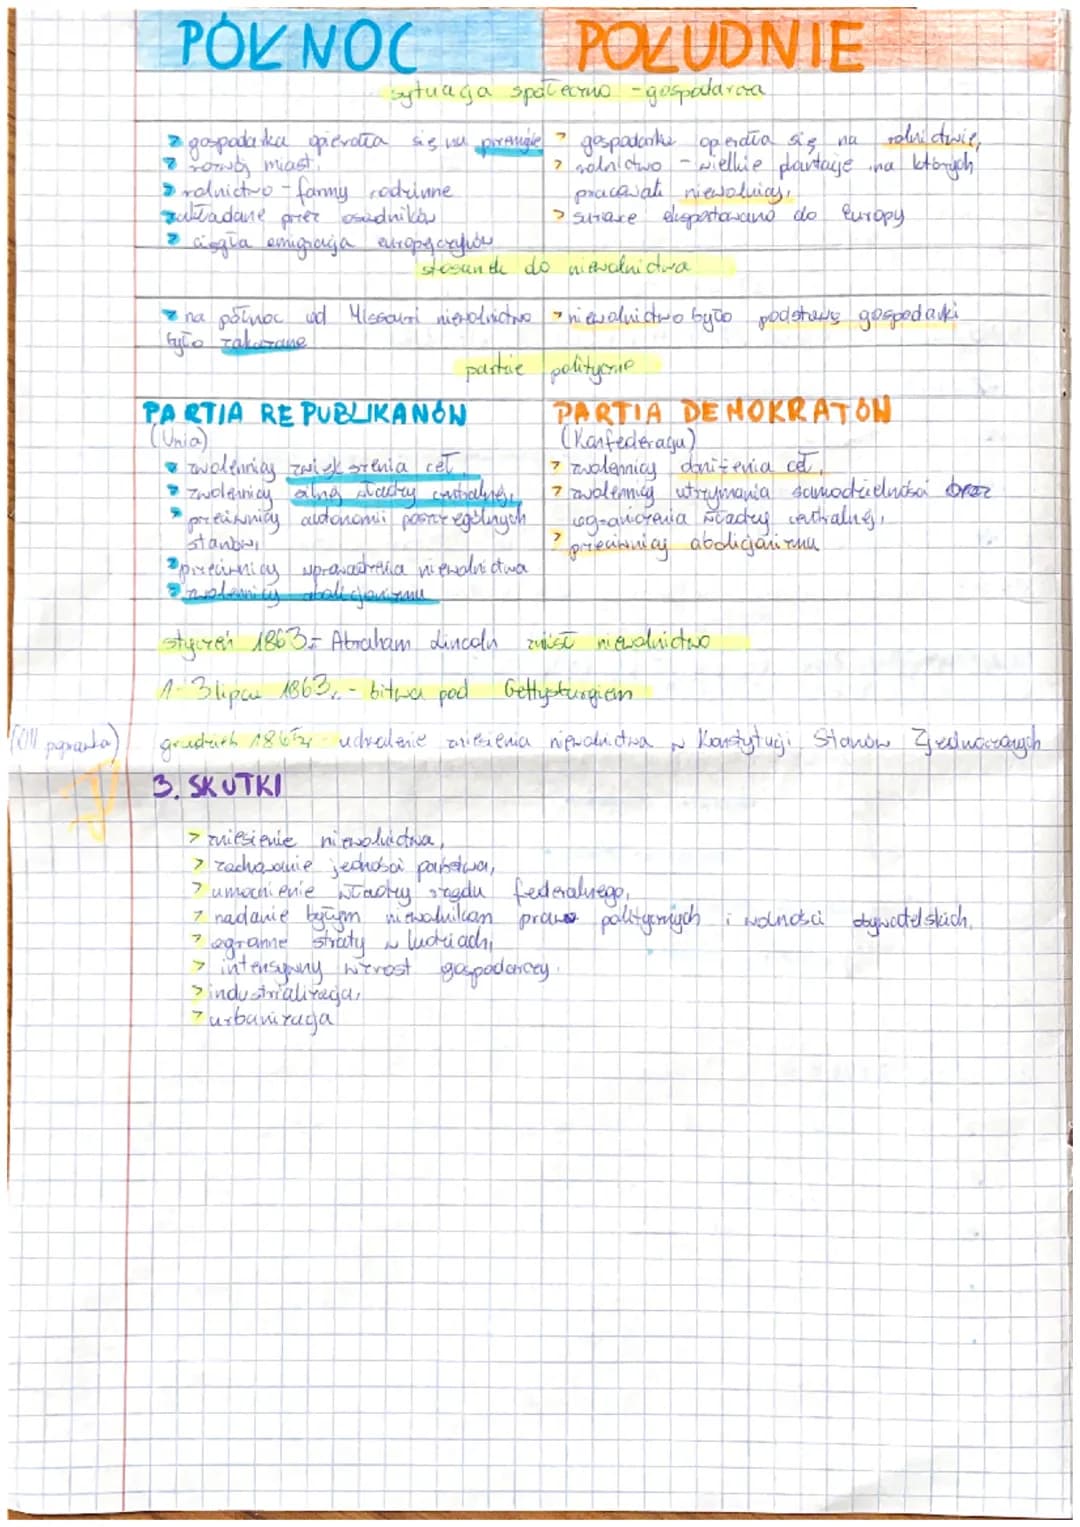 PÓŁNOC POŁUDNIE
sytuacja społeczno - gospodarcza
> gospodarka opierała się na przemyśle
> rozwój miast,
> rolnictwo - farmy rodzinne
zakładane przez osadników
> ciągła emigracja europejczyków
> gospodarka opierała się na rolnictwie,
> rolnictwo - wielkie plantacje na których
pracowali niewolnicy,
> surowce eksportowano do Europy
stosunek do niewolnictwa
> na północ od Missouri niewolnictwo
było zakazane
> niewolnictwo było podstawą gospodarki
partie polityczne
PARTIA REPUBLIKANÓW
(Unia)
> zwolennicy zwiększenia ceł,
> zwolennicy silnej władzy centralnej,
> przeciwnicy autonomii poszczególnych
stanów,
> przeciwnicy wprowadzenia niewolnictwa
> zwolennicy abolicjonizmu
PARTIA DEMOKRATÓW
(Konfederacja)
> zwolennicy obniżenia ceł,
> zwolennicy utrzymania samodzielności oraz
ograniczenia władzy centralnej,
> przeciwnicy abolicjonizmu
styczeń 1863r. - Abraham Lincoln zniósł niewolnictwo
1-3 lipca 1863r. - bitwa pod Gettysburgiem
(XIII poprawka) grudzień 1865r. - uchwalenie zniesienia niewolnictwa w Konstytucji Stanów Zjednoczonych
3. SKUTKI
> zniesienie niewolnictwa,
> zachowanie jedności państwa,
> umocnienie władzy rządu federalnego,
> nadanie byłym niewolnikom praw politycznych i wolności obywatelskich,
> ogromne straty w ludziach,
> intensywny wzrost gospodarczy,
> industrializacja,
> urbanizacja